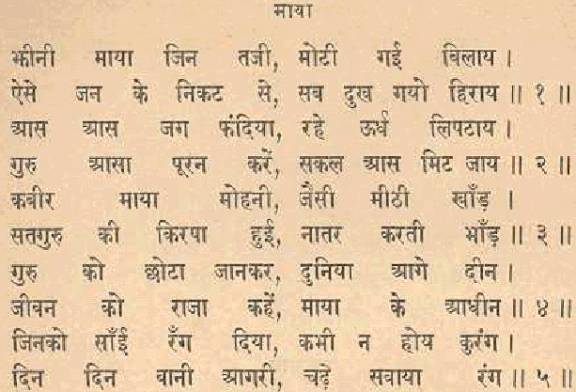 माया
झीनी माया जिन तजी, मोटी गई बिलाय।
ऐसे जन के निकट से, सब दुख गयो हिराय ॥ १ ॥
आस आस जग फंदिया, रहे ऊर्ध लिपटाय।
गुरु आसा पूरन करें, सकल आस मिट जाय ॥ २ ॥
कबीर माया मोहनी, जैसी मीठी खाँड़।
सतगुरु की किरपा हुई, नातर करती भाँड़ ॥ ३ ॥
गुरु को छोटा जानकर, दुनिया आगे दीन।
जीवन को राजा कहें, माया के आधीन ॥ ४ ॥
जिनको साँई रँग दिया, कभी न होय कुरंग।
दिन दिन वानी आगरी, चढ़े सवाया रंग ॥ ५ ॥